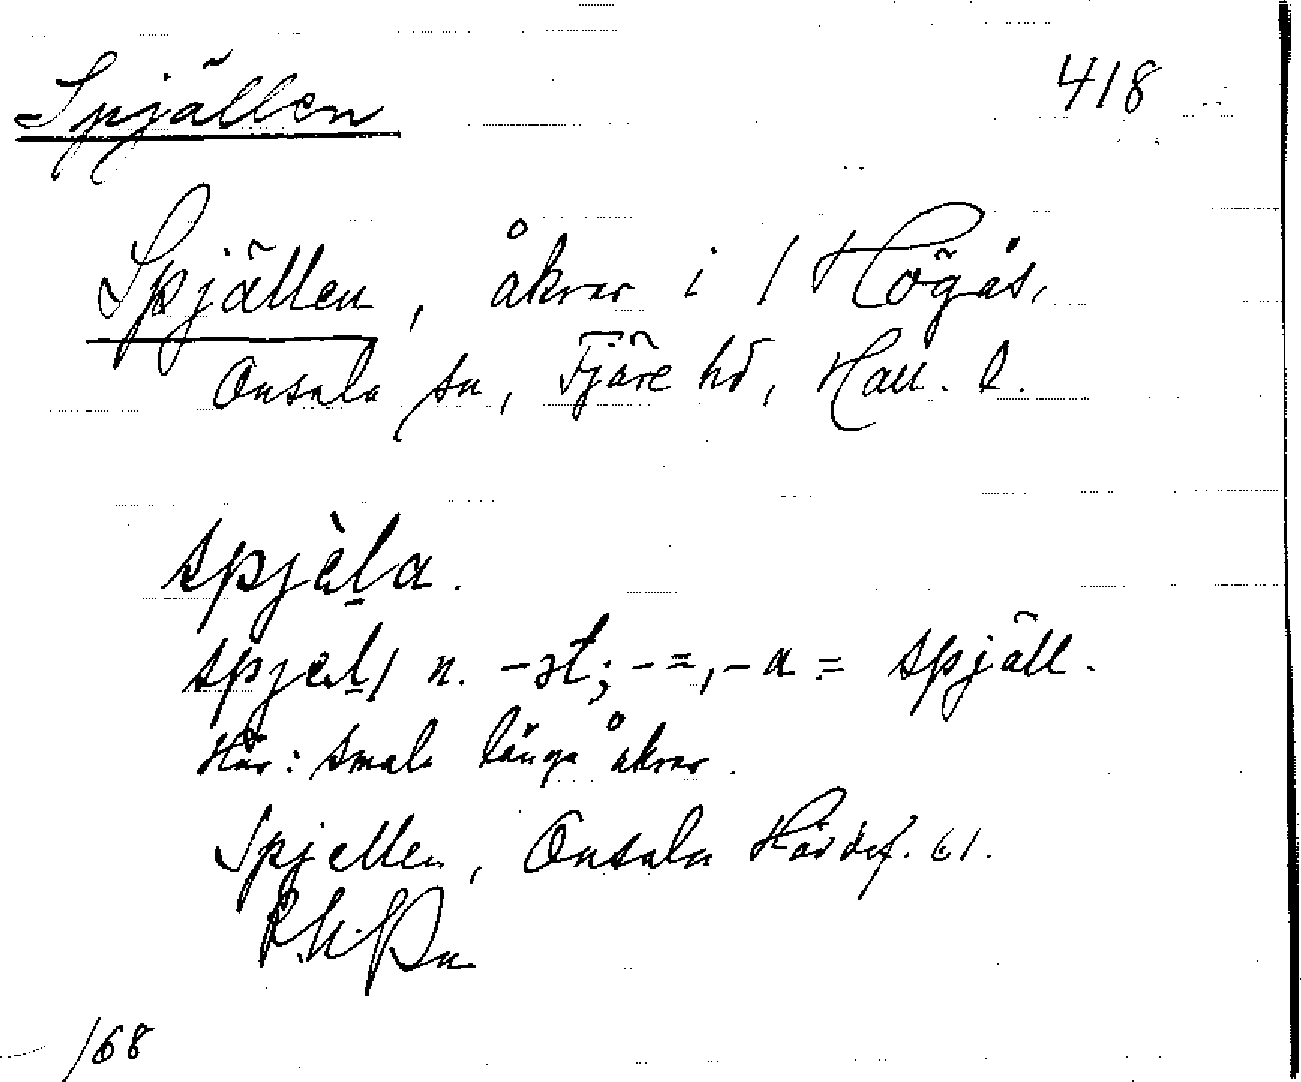 Spjällen
418
Spjällen, åkrar i 1 Högås,
Onsala sn, Fjäre hd, Hall. l.
spjèḻa.
spjeḻ/ n. -ət; - =, - a = spjäll.
Här: smala långa åkrar.
Spjellen, Onsala Härdef. 61.
/68